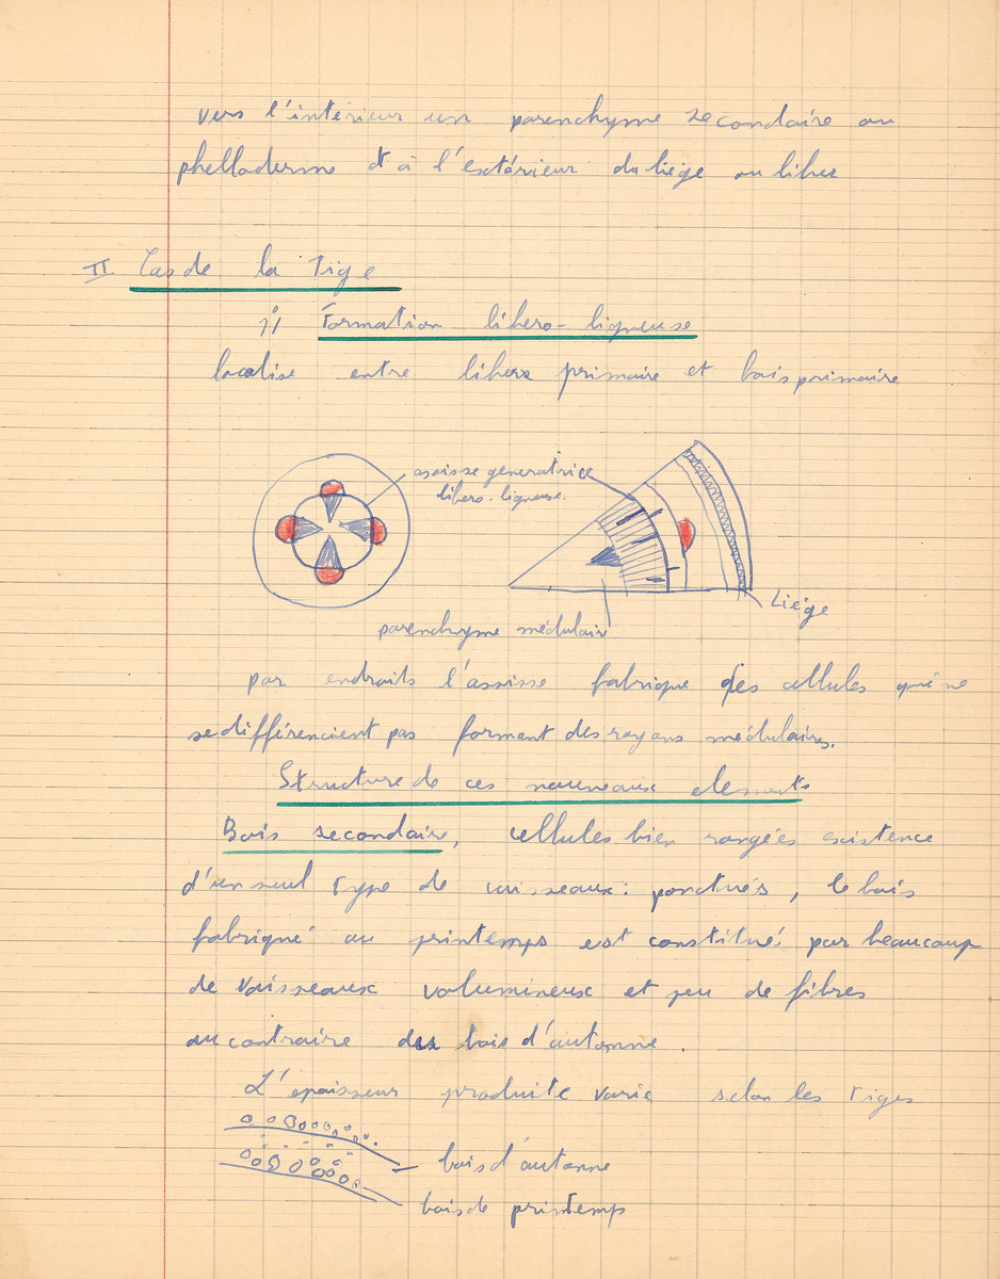 vers l'intérieur un parenchyme secondaire ou
phelloderme et à l'extérieur du liège ou liber
II Cas de la Tige
1°/ Formation libero-ligneuse
localise entre liber primaire et bois primaire
assisse generatrice
libero-ligneuse.
Liège
parenchyme médulair
par endroits l'assisse fabrique des cellules qui ne
se différencient pas forment des rayons médulaires.
Structure de ces nouveaux elements
Bois secondaire, cellules bien rangées existence
d'un seul type de vaisseaux : ponctués, le bois
fabriqué au printemps est constitué par beaucoup
de vaisseaux volumineux et peu de fibres
au contraire du bois d'automne.
L'épaisseur produite varie selon les tiges
bois d'automne
bois de printemps